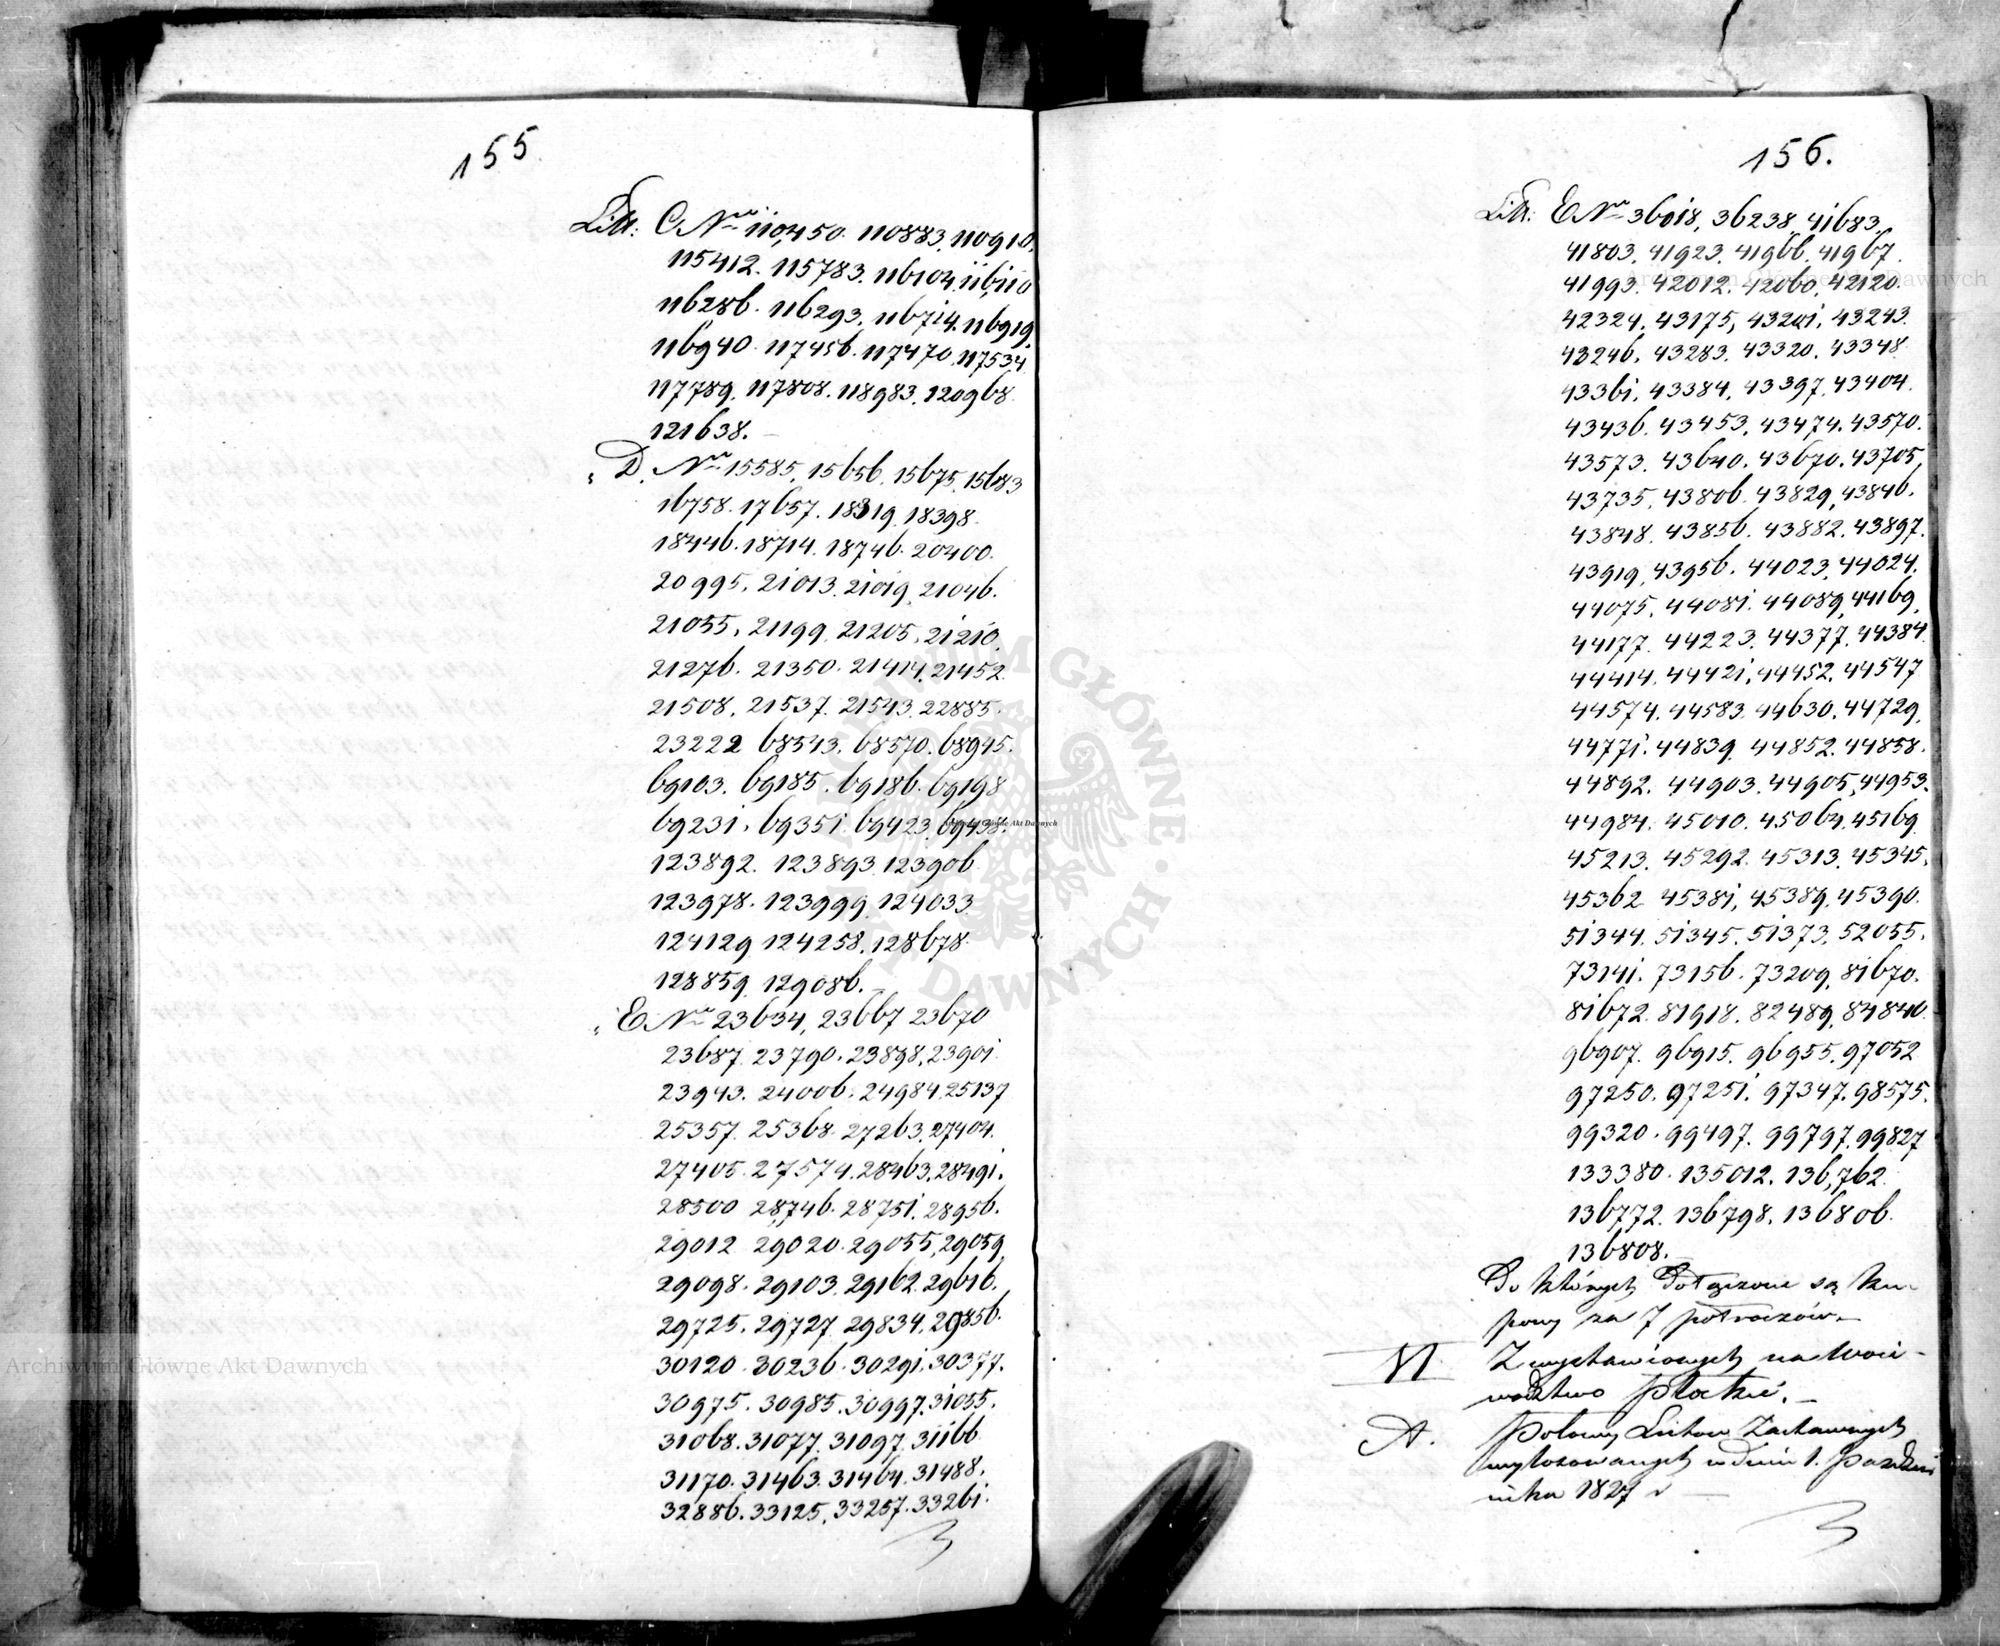 155
Litt: C Nro 110,450. 110883. 110910.
115412. 115783. 116104. 116110
116286. 116293. 116714. 116919.
116940. 117456. 117470. 117534.
117789. 117808. 118983. 120968.
121638.
„ D. Nro 15585. 15656. 15675. 15683
16758. 17657. 18319. 18398.
18446. 18714. 18746. 20400.
20995. 21013. 21019. 21046.
21055. 21199. 21205. 21210.
21276. 21350. 21414. 21452.
21508. 21537. 21543. 22885.
23222 68543. 68570. 68945.
69103. 69185. 69186. 69198
69231. 69351. 69423. 69438.
123892. 123893. 123906.
123978. 123999. 124033.
124129. 124258. 128678.
128859. 129086.
„ E Nro 23634, 23667 23670
23687. 23790. 23898. 23901.
23943. 24006. 24984. 25137
25357. 25368. 27263. 27404.
27405. 27574. 28463. 28491.
28500 28746. 28751. 28956.
29012 29020. 29055. 29059.
29098. 29103. 29162. 29616.
29725. 29727. 29834. 29856.
30120. 30236. 30291. 30377.
30975. 30985. 30997. 31055.
31068. 31077. 31097. 31166
31170. 31463. 31464. 31488.
32886. 33125. 33257. 33261.
156.
Litt: E Nro 36018, 36238, 41683.
41803. 41923. 41966. 41967.
41993. 42012. 42060. 42120.
42324. 43175, 43201. 43243.
43246. 43283. 43320. 43348.
43361. 43384. 43397. 43404.
43436. 43453. 43474. 43570.
43573. 43640. 43670. 43705.
43735. 43806. 43829. 43846.
43848. 43856. 43882. 43897.
43919. 43956. 44023. 44024.
44075. 44081. 44089. 44169.
44177. 44223. 44377. 44384.
44414. 44421. 44452. 44547.
44574. 44583. 44630. 44729.
44771. 44839. 44852. 44858.
44892. 44903. 44905. 44953.
44984. 45010. 45064. 45169.
45213. 45292. 45313. 45345.
45362 45381. 45389. 45390.
51344. 51345. 51373. 52055.
73141. 73156. 73209. 81670.
81672. 81918. 82489. 84840.
96907. 96915. 96955. 97052
97250. 97251. 97347. 98575.
99320. 99497. 99797. 99827
133380. 135012. 136,762.
136772. 136798. 136806.
136808.
Do których dołączone są ku-
pony za 7 półroczów.
VI Z wystawionych na Woie-
wództwo Płockie.
A. Połowy Listów Zastawnych
wylosowanych w dniu 1. Paździer
nika 1827 r
Archiwum Główne Akt Dawnych